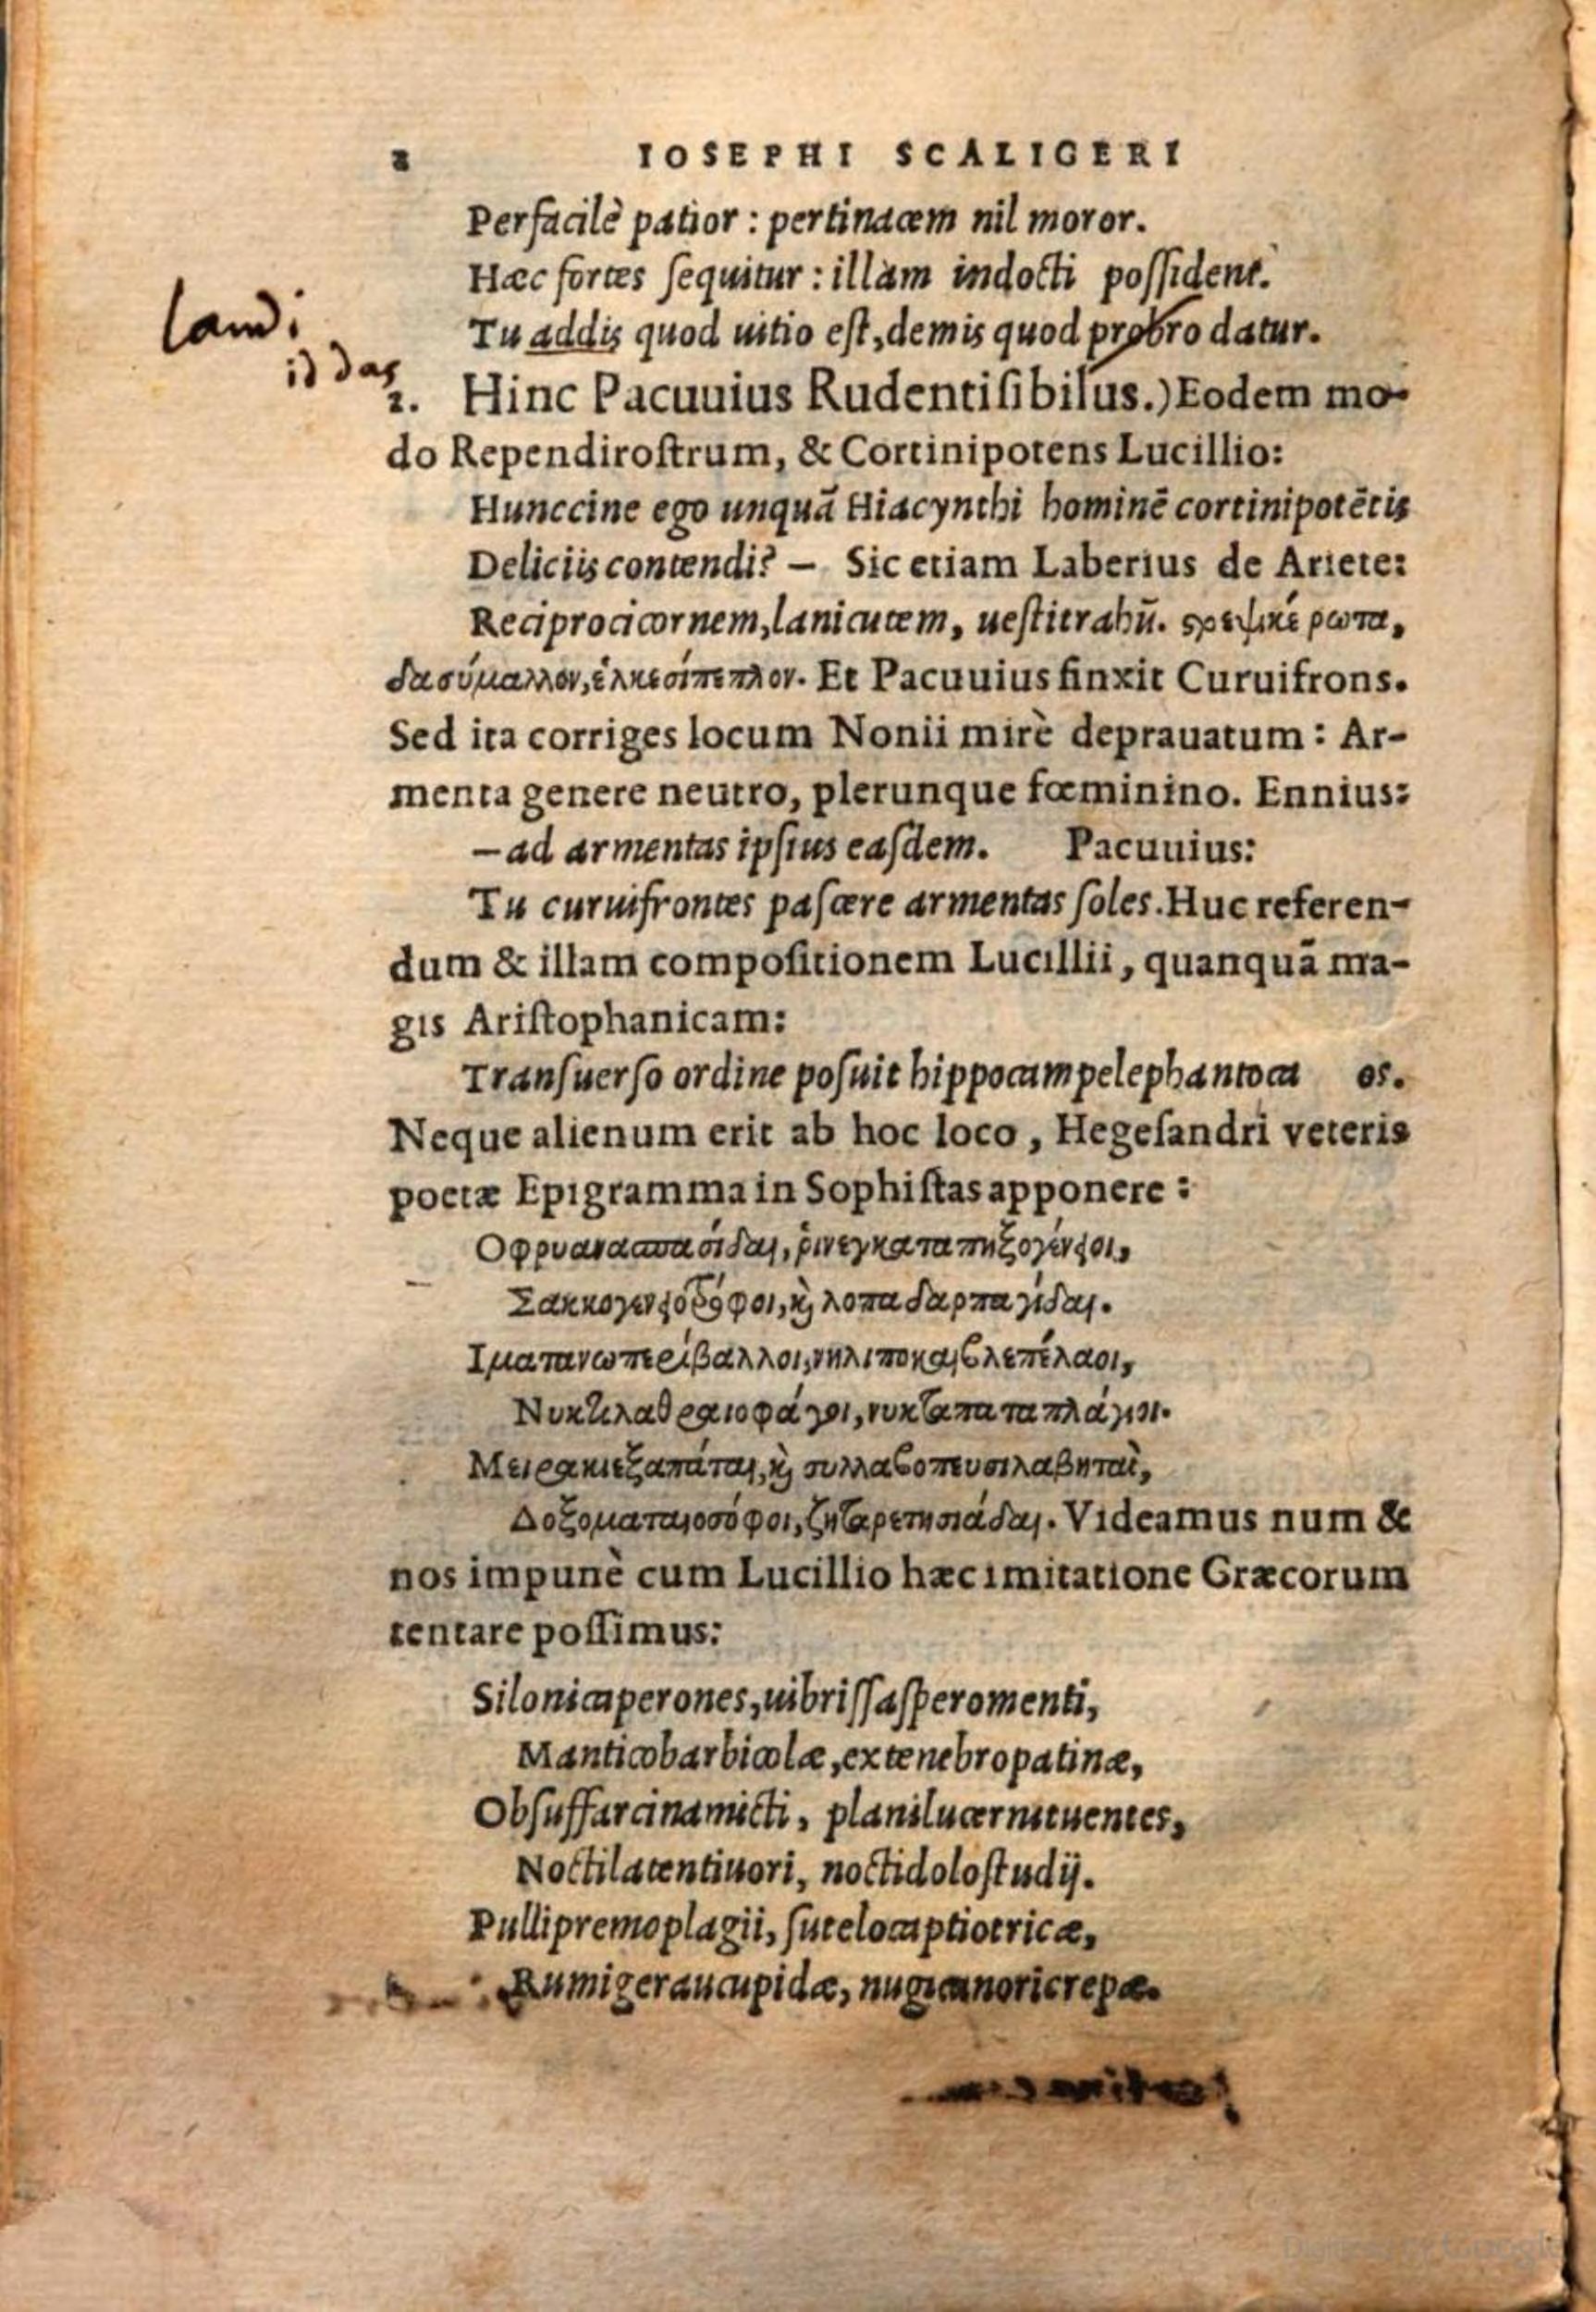 2 IOSEPHI SCALIGERI
Perfacilè patior : pertinacem nil moror.
Hæc fortes ſequitur : illam indocti poſſident.
Tu addis quod uitio eſt, demis quod probro datur.
laudi
id das
2. Hinc Pacuuius Rudentiſibilus.) Eodem mo-
do Rependiroſtrum, & Cortinipotens Lucillio:
Hunccine ego unquā Hiacynthi hominē cortinipotētis
Deliciis contendi? — Sic etiam Laberius de Ariete:
Reciprocicornem, lanicutem, ueſtitrahū. ςρεψικέρωτα,
δασύμαλλον, ἑλκεσίπεπλον. Et Pacuuius finxit Curuifrons.
Sed ita corriges locum Nonii mirè deprauatum : Ar-
menta genere neutro, plerunque fœminino. Ennius:
— ad armentas ipſius eaſdem. Pacuuius:
Tu curuifrontes paſcere armentas ſoles. Huc referen-
dum & illam compoſitionem Lucillii, quanquā ma-
gis Ariſtophanicam:
Tranſuerſo ordine poſuit hippocampelephantoca os.
Neque alienum erit ab hoc loco, Hegeſandri veteris
poetæ Epigramma in Sophiſtas apponere :
Οφρυανασπασίδαι, ῥινεγκαταπηξογένειοι,
Σακκογενειοτρόφοι, καὶ λοπαδαρπαγίδαι.
Ιματανωπερίβαλλοι, νηλιποκαιβλεπέλαοι,
Νυκτιλαθραιοφάγοι, νυκταπαταπλάγιοι.
Μειρακιεξαπάται, καὶ συλλαβοπευσιλαβηταὶ,
Δοξοματαιοσόφοι, ζηταρετησιάδαι. Videamus num &
nos impunè cum Lucillio hæc imitatione Græcorum
tentare poſſimus:
Silonicaperones, uibriſſaſperomenti,
Manticobarbicolæ, extenebropatinæ,
Obſuffarcinamicti, planilucernituentes,
Noctilatentiuori, noctidoloſtudij.
Pullipremoplagii, ſutelocaptiotricæ,
Rumigeraucupidæ, nugicanoricrepæ.